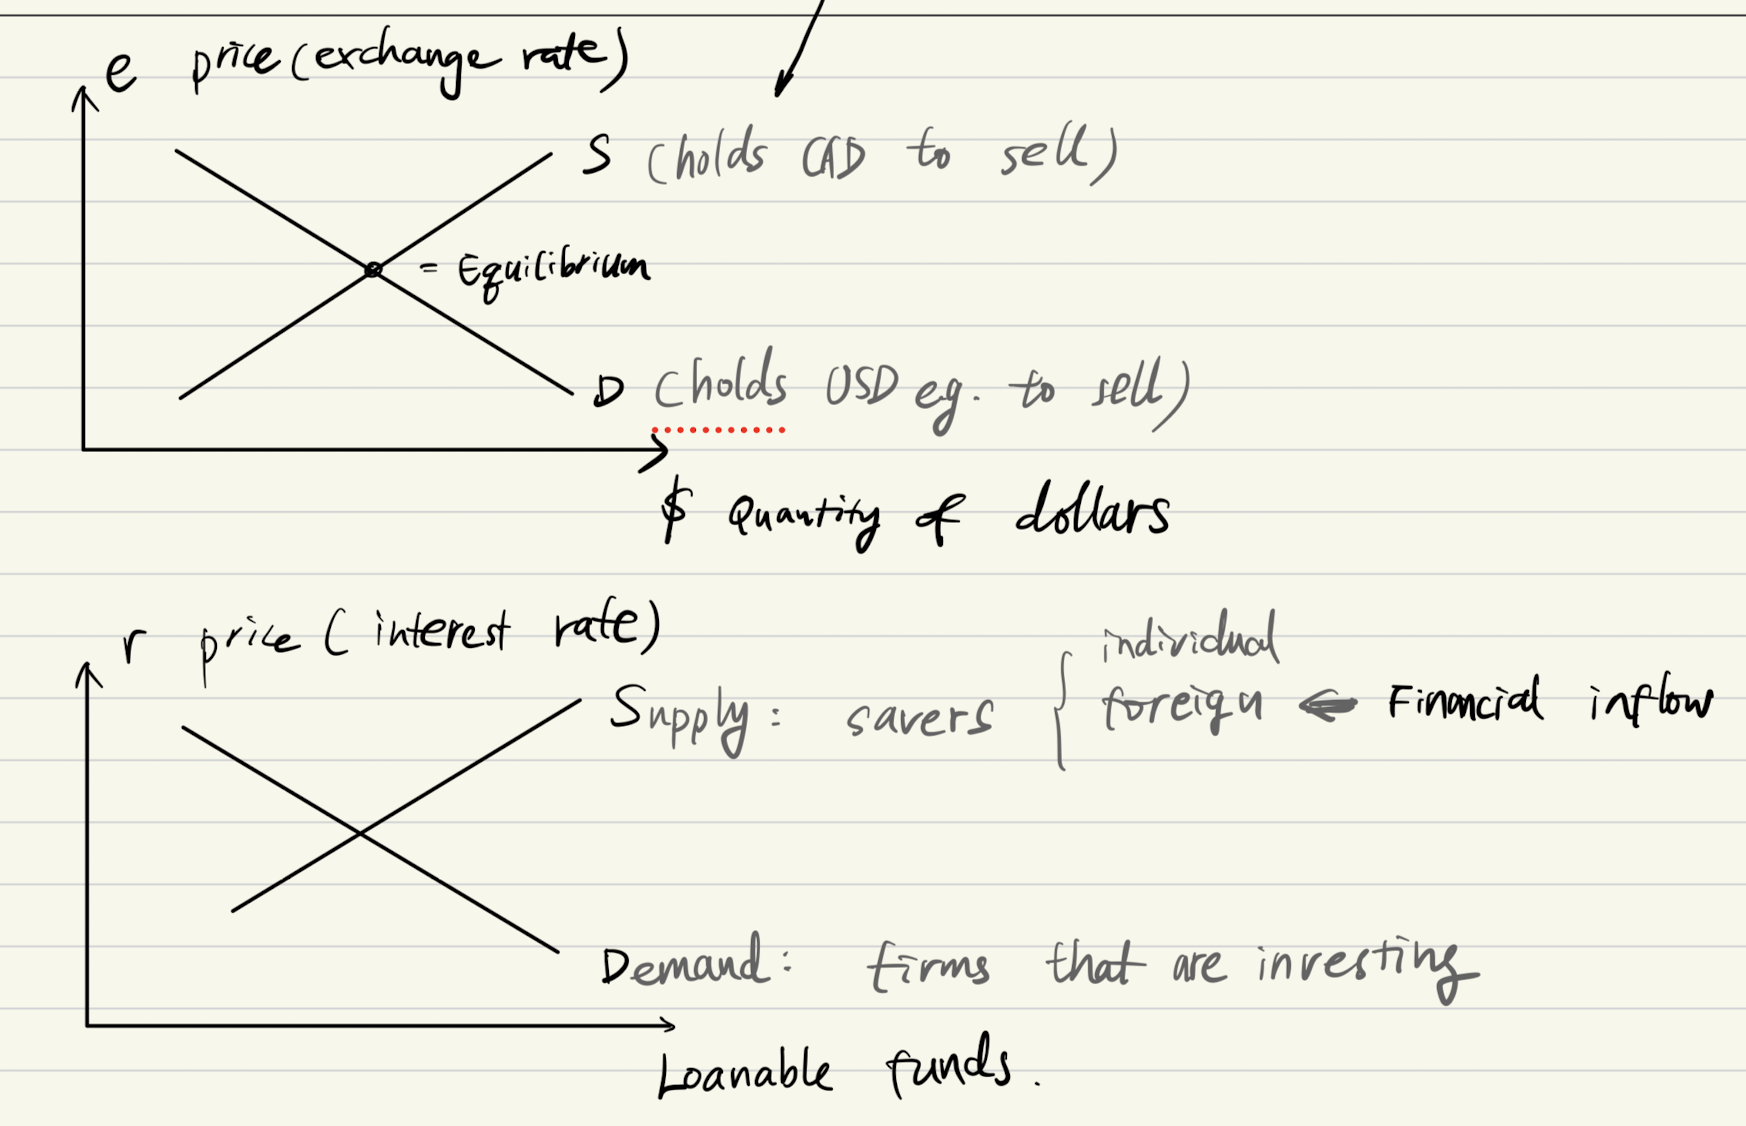 e price (exchange rate)
S (holds CAD to sell)
= Equilibrium
D (holds USD eg. to sell)
$ Quantity of dollars
r price (interest rate)
individual
Supply: savers { foreign ⇐ Financial inflow
Demand: firms that are investing
Loanable funds.